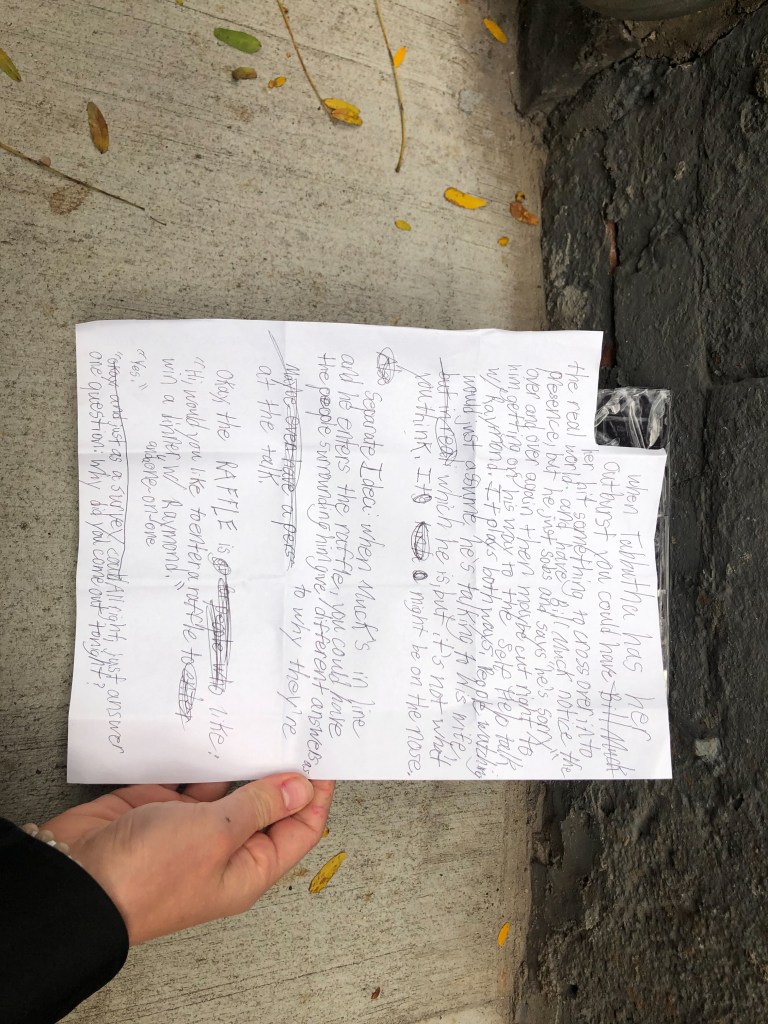 When Tulbutha has her
outburst you could have Bill/Muck
her hit something to cross over into
the real world, and have Bill/Muck notice the
presence, but he just sobs and says he's "sorry"
over and over again then maybe cut right to
him getting on his way to the self help talk
w/ Raymond. It plays both ways, people watching
would just assume he's talking to his wife,
which he is but it's not what
you think, It might be on the nose.
Separate Idea: when Muck's in line
and he enters the raffle, you could have
the people surrounding him give different answers as
to why they're
at the talk.
Okay the RAFFLE is like:
"Hi, would you like to enter a raffle to
win a dinner w/ Raymond,"
one-on-one
"Yes."
All right, just answer
one question. Why did you come out tonight?